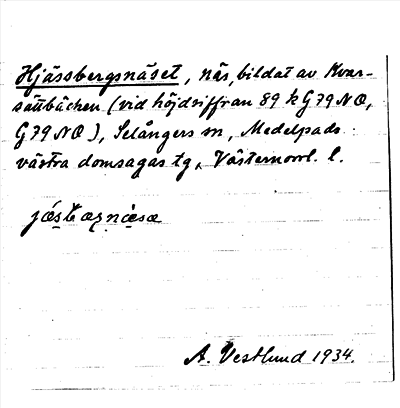 Hjässbergsnäset, näs, bildat av Kvar-
sättbäcken (vid höjdsiffran 89 k G79NO,
G79NO), Selångers sn, Medelpads
västra domsagas tg, Västernorrl. l.
A. Vestlund 1934.